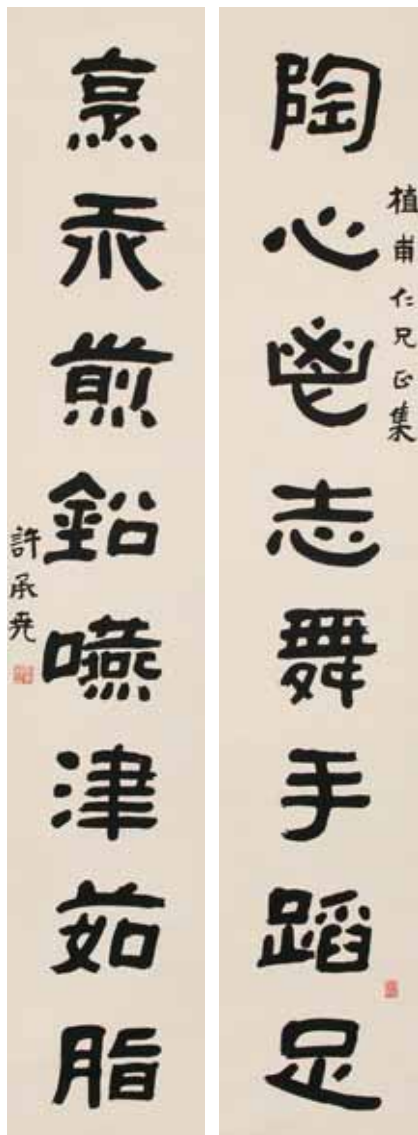 陶心鬯志舞手蹈足
植甫仁兄正集
烹汞煎鉛嚥津茹脂
許承堯